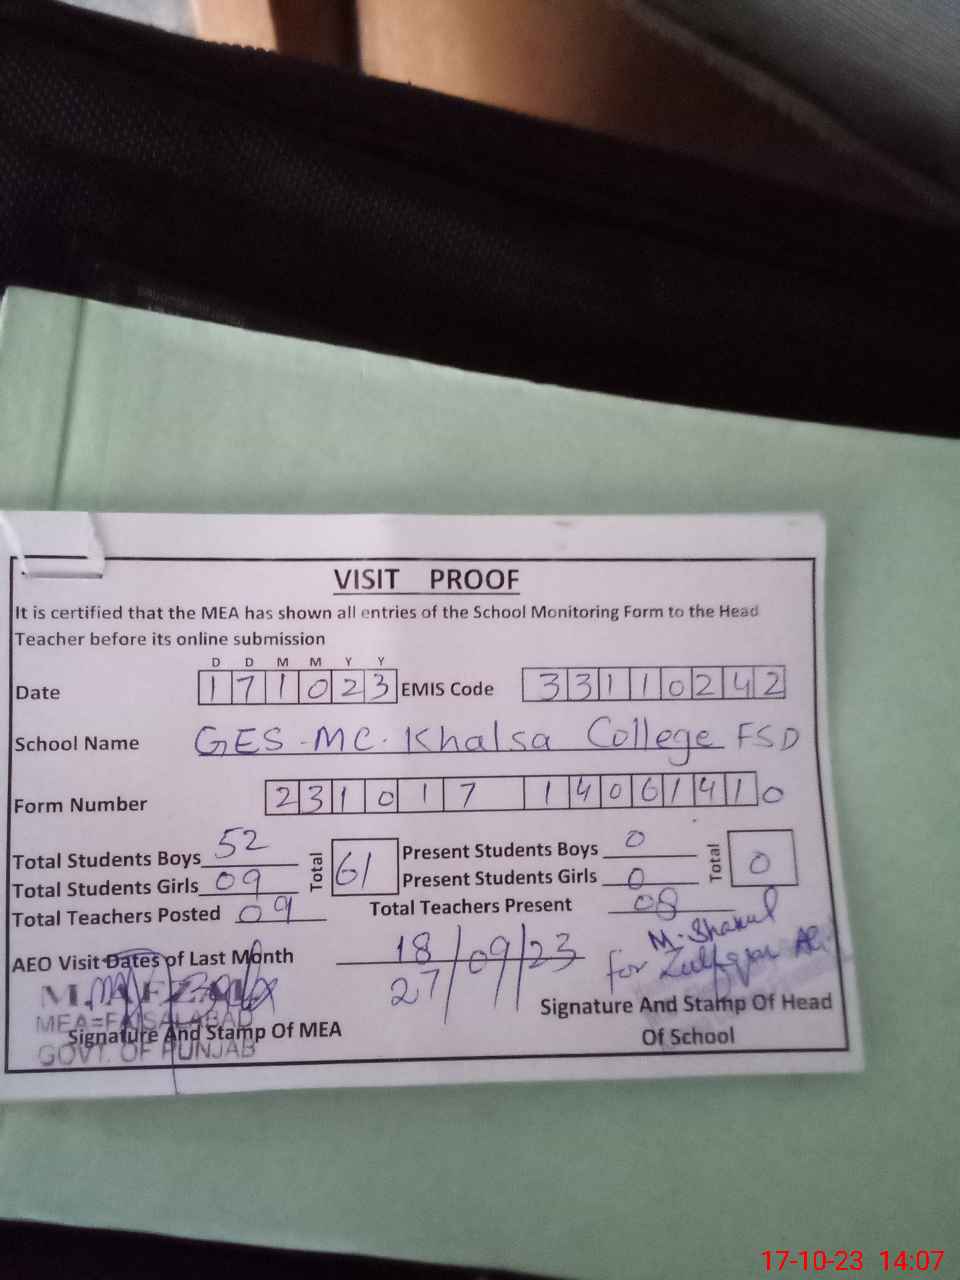 VISIT PROOF
It is certified that the MEA has shown all entries of the School Monitoring Form to the Head
Teacher before its online submission
D D M M Y Y
Date 171023 EMIS Code 33110242
School Name GES-MC. Khalsa College FSD
Form Number 231017 14061410
Total Students Boys 52 Total 61 Present Students Boys 0 Total 0
Total Students Girls 09 Present Students Girls 0
Total Teachers Posted 09 Total Teachers Present 08
AEO Visit Dates of Last Month 18/09/23
27
M. Shakul
for Zulfqar Ali
MEA=FAISALABAD
GOVT. OF PUNJAB
Signature And Stamp Of MEA
Signature And Stamp Of Head
Of School
17-10-23 14:07